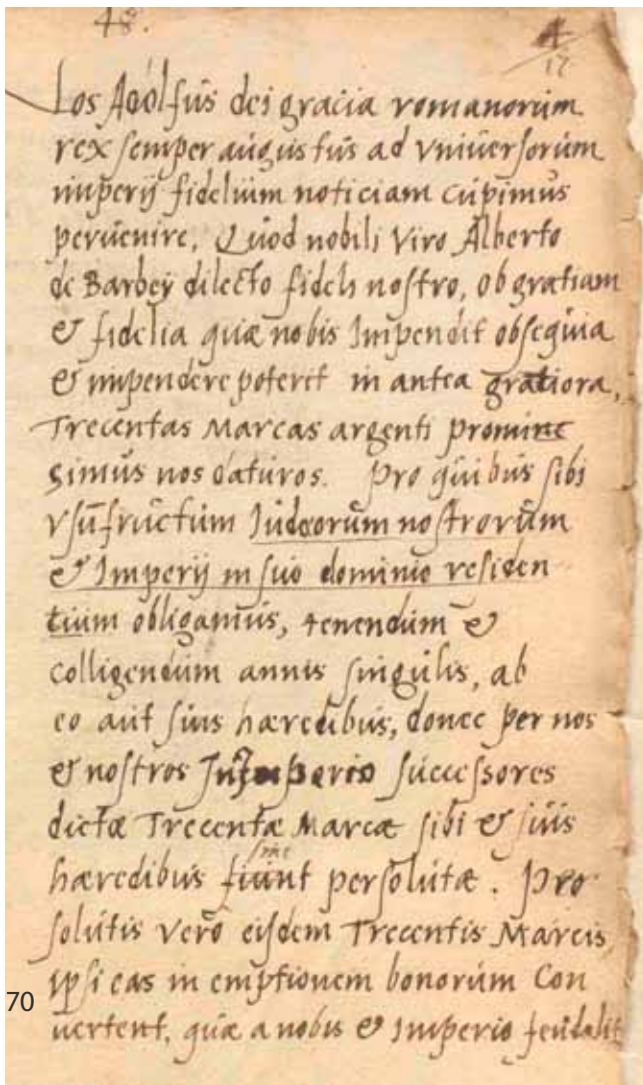 48.
4
17
Los Adolfus dei gracia romanorum
rex semper augustus ad vniuersorum
imperij fidelium noticiam cupimus
peruenire. Quod nobili Viro Alberto
de Barbey dilecto fideli nostro, ob gratiam
& fidelia quæ nobis Impendit obsequia
& impendere poterit in antea gratiora,
Trecentas Marcas argenti promine
simus nos daturos. Pro quibus sibi
vsufructum Iudæorum nostrorum
& Imperij in suo dominio residen
tium obligamus, tenendum &
colligendum annis singulis, ab
eo aut suis hæredibus, donec per nos
& nostros Imperio successores
dictæ Trecentæ Marcæ sibi & suis
hæredibus fiunt persolutæ. Pro
solutis vero eisdem Trecentis Marcis
ipsi eas in emptionem bonorum Con
uertent, quæ a nobis & Imperio feudalit
70